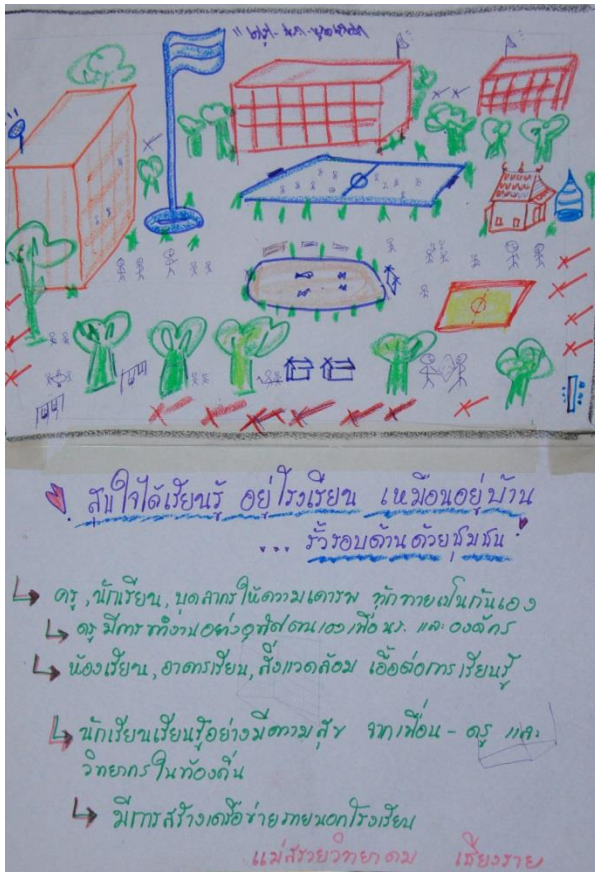 สุขใจได้เรียนรู้ อยู่โรงเรียน เหมือนอยู่บ้าน
... รั้วรอบด้านด้วยชุมชน
ครู, นักเรียน, บุคลากรให้ความเคารพ ทักทายเป็นกันเอง
ครูมีการทำงานอย่างอุทิศตนเองเพื่อ นร. และองค์กร
ห้องเรียน, อาคารเรียน, สิ่งแวดล้อม เอื้อต่อการเรียนรู้
นักเรียนเรียนรู้อย่างมีความสุข จากเพื่อน - ครู และ
วิทยากรในท้องถิ่น
มีการสร้างเครือข่ายภายนอกโรงเรียน
แม่สรวยวิทยาคม เชียงราย